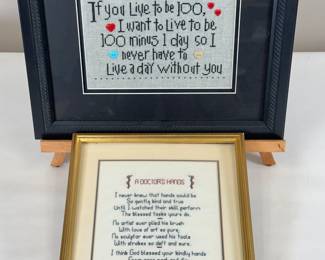 If you Live to be 100,
I want to Live to be
100 minus 1 day so I
never have to
Live a day without you
A DOCTOR'S HANDS
I never knew that hands could be
So gently kind and true
Until I watched their skill perform
The blessed tasks yours do.
No artist ever plied his brush
With love of art so pure;
No sculptor ever used his tools
With strokes so deft and sure.
I think God blessed your kindly hands